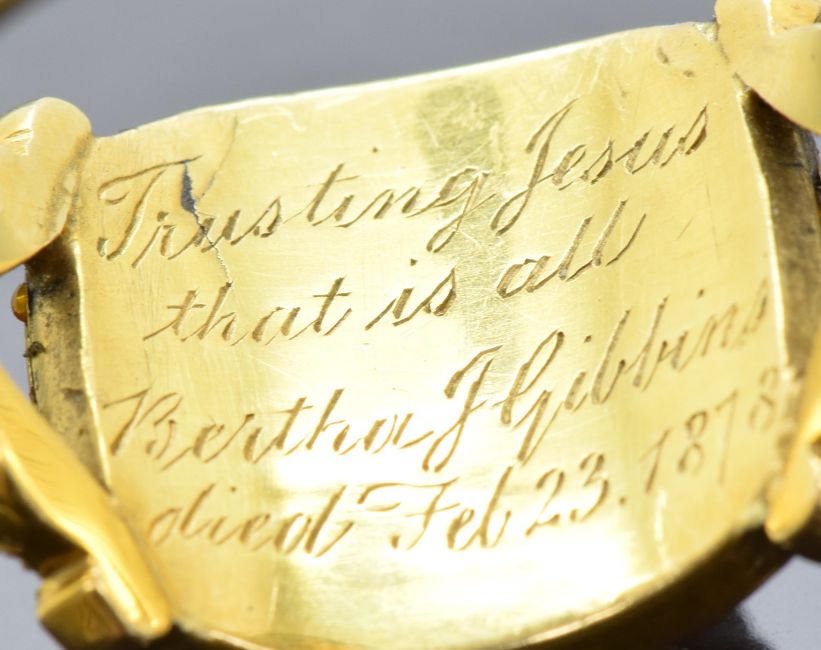 Trusting Jesus
that is all
Bertha J Gibbins
died Feb 23. 1878